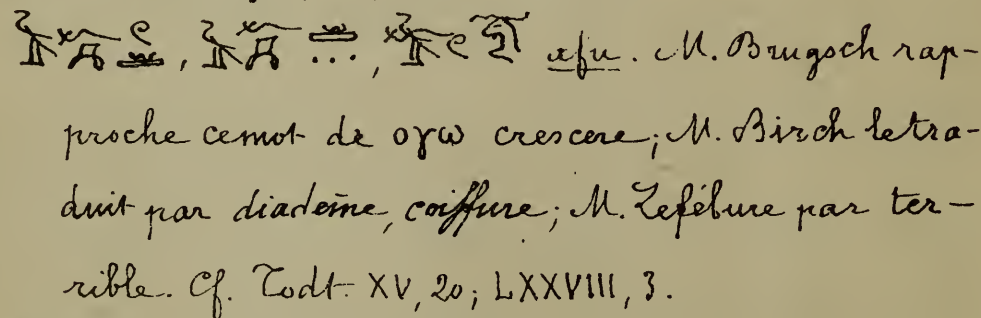 , ... , afu. M. Brugsch rap-
proche ce mot de ογω crescere; M. Birch le tra-
duit par diadème, coiffure; M. Lefébure par ter-
rible. Cf. Todt. XV, 20; LXXVIII, 3.